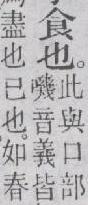 食也。
此與口部
嘰音義皆
盡也已也。如春